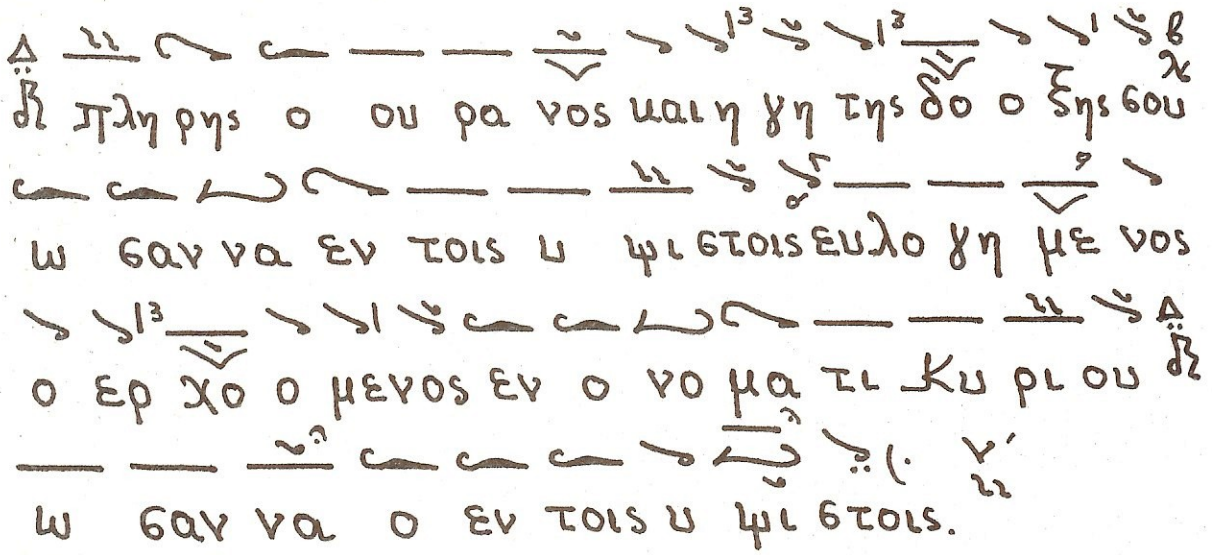 πλη ρης ο ου ρα νος και η γη της δο ο ξης σου
ω σαν να εν τοις υ ψι στοις ευλο γη με νος
ο ερ χο ο μενος εν ο νο μα τι Κυ ρι ου
ω σαν να ο εν τοις υ ψι στοις.